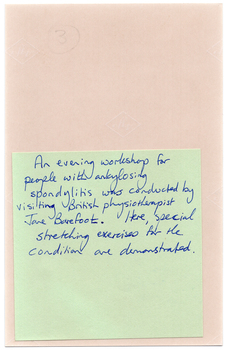 3
An evening workshop for
people with ankylosing
spondylitis was conducted by
visiting British physiotherapist
Jane Barefoot. Here, special
stretching exercises for the
condition are demonstrated.